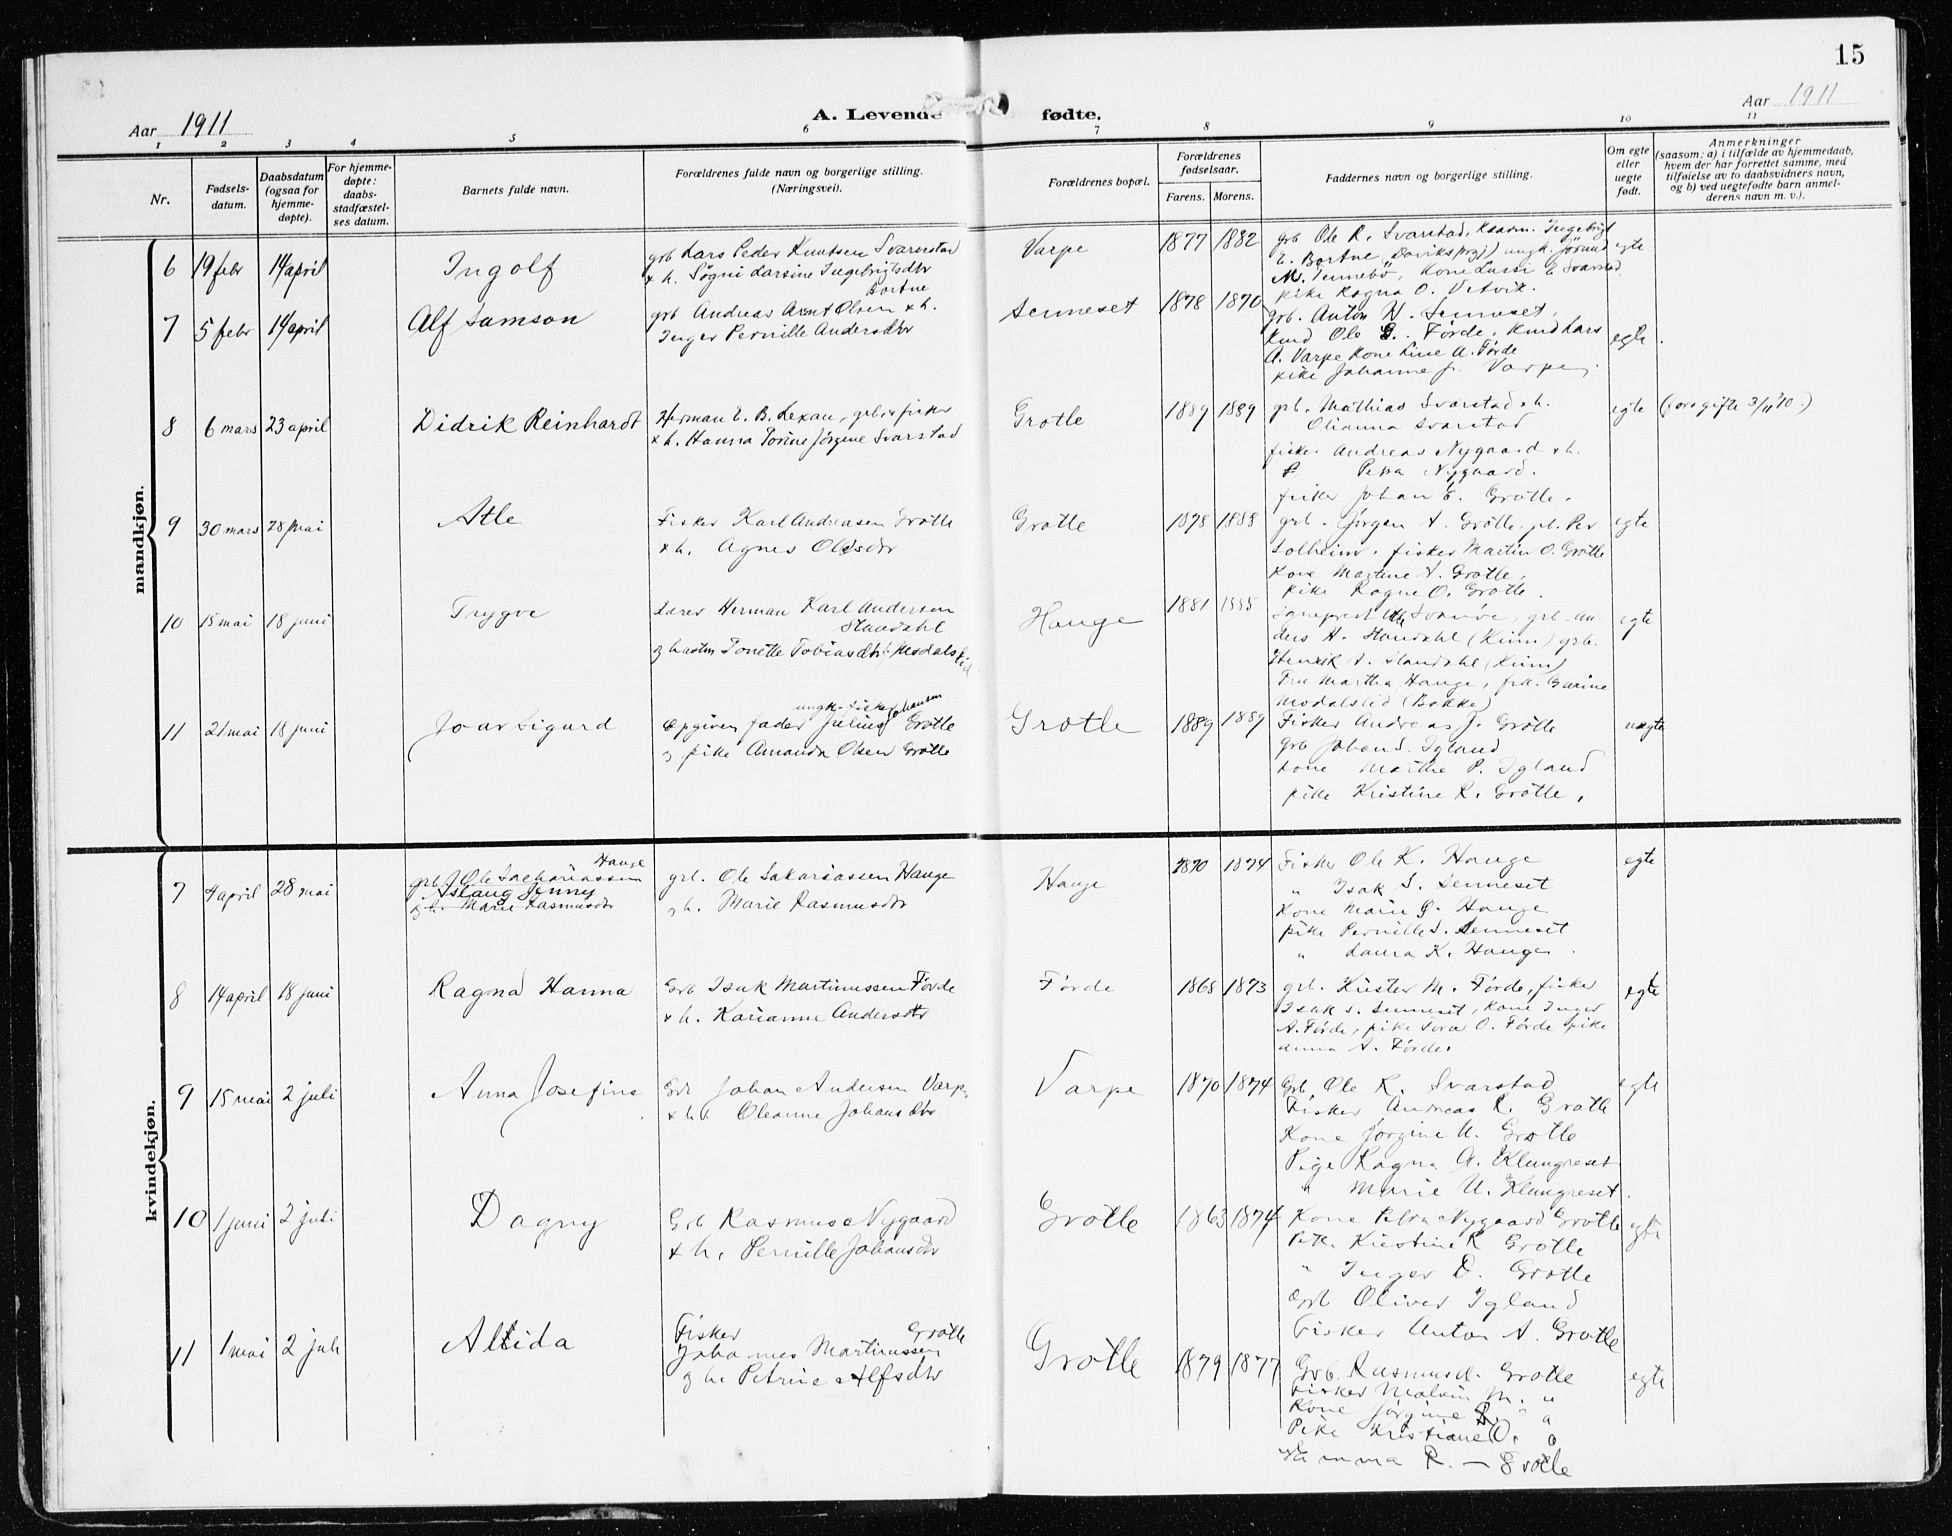 15
Aar 1911
A. Levende fødte.
Aar 1911
1 2 3 4 5 6 7 8 9 10 11
Nr.
Fødsels-
datum.
Daabsdatum
(ogsaa for
hjemme-
døpte).
For hjemme-
døpte:
daabs-
stadfæstel-
ses datum.
Barnets fulde navn.
Forældrenes fulde navn og borgerlige stilling.
(Næringsvei).
Forældrenes bopæl.
Forældrenes
fødselsaar.
Farens. Morens.
Faddernes navn og borgerlige stilling.
Om egte
eller
uegte
født.
Anmerkninger
(saasom: a) i tilfælde av hjemmedaab,
hvem der har forrettet samme, med
tilføielse av to daabsvidners navn,
og b) ved uegtefødte barn anmel-
derens navn m. v.).
mandkjøn.
6 19 febr 14 april Ingolf
grb Lars Peder Knutsen Svarestad
+ h. Søgni Larsine Ingebrigtsdtr
Bortne
Varpe 1877 1882
grb Ole R. Svarstad, Ingebrigt
E. Bortne, ungk.
M. Tennebö, Kone Lussi E Svarstad
pike Ragna O. Vetvik.
egte
7 5 febr 14 april Alf Samson
grb Andreas Arnt Olsen + h.
Inger Pernille Andersdtr
Senneset 1878 1870
grb. Anton N. Senneset,
Knud Ole G. Førde, Knud Lars
A. Varpe Kone Line A. Førde
pike Johanne J. Varpe.
egte
8 6 mars 23 april Didrik Reinhardt
Herman E. B. Lexau, grb. + fisker
+ h. Hanna Torine Jørgine Svarstad
Grotle 1889 1889
grb. Mathias Svarstad + h.
Olianna Svarstad
fisker Andreas Nygaard + h.
Petra Nygaard.
fisker Johan E. Grotle.
egte (foræ gifte 3/11 10.)
9 30 mars 28 mai Atle
Fisker Karl Andreasen Grotle
+ h. Agnes Olsdtr
Grotle 1878 1888
grb. Jørgen A. Grotle. Per
Solheim. fisker Martin O. Grotle
Kone Martine A. Grotle,
pike Ragna O. Grotle.
egte
10 15 mai 18 juni Trygve
Lærer Herman Karl Andersen
Standahl
og hustru Tonette Tobiasdtr. Mosdalslid
Hauge 1881 1885
Sogneprest Svanöe, grb. An-
ders H. Standahl (Kinn) grb.
Henrik A. Standahl (Kinn)
Fru Martha Hauge, frk. Garine
Mosdalslid (Bakke)
egte
11 21 mai 18 juni Joar Sigurd
ungk. fisker Johansen
Opgiven fader Julius Grotle
og pike Amanda Olsen Grotle
Grotle 1889 1889
Fisker Andreas J. Grotle
Grb Johan S. Igland
Kone Marthe P. Igland
pike Kristine R. Grotle,
uegte
kvindekjøn.
7 4 april 28 mai
Hauge
grb Ole Sachariassen
Aslaug Jenny
og h. Marie Rasmusdtr
grb. Ole Sakariassen Hauge
og h. Marie Rasmusdtr
Hauge 1870 1874
Fisker Ole K. Hauge
" Isak S. Senneset
Kone Marie S. Hauge
pike Pernille S. Senneset
" Laura K. Hauge.
egte
8 14 april 18 juni Ragna Hanna
Grb Isak Martinussen Førde
+ h. Karianne Andersdtr
Førde 1868 1873
grb. Krister M. Førde, fisker
Isak S. Senneset, Kone Inger
A. Førde, pike Tora O. Førde pike
Anna A. Førde.
egte
9 15 mai 2 juli Anna Josefine
Grb Johan Andersen Varpe
+ h. Oleanne Johansdtr
Varpe 1870 1874
Grb. Ole R. Svarstad
Fisker Andreas R. Grotle
Kone Jørgine U. Grotle
Pige Ragna A. Klungreset
" Marie U. Klungreset.
egte
10 1 juni 2 juli Dagny
Grb Rasmus Nygaard
+ h. Pernille Johansdtr
Grotle 1863 1874
Kone Petra Nygaard Grotle
Pike Kristine R Grotle
" Inger D. Grotle
Grb Oliver Igland
Fisker Anton A. Grotle
egte
11 1 mai 2 juli Alida
Fisker Grotle
Johannes Martinussen
og h. Petrine Alfsdtr
Grotle 1879 1877
Grb. Rasmus A. Grotle
Fisker Malvin M. "
Kone Jørgine R. "
Pike Kristiane O. "
Emma R. — Grotle
egte